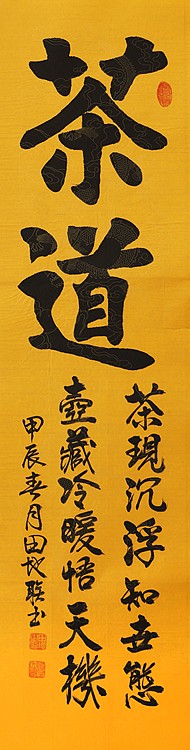 茶道
茶現沉浮知世態
壺藏冷暖悟天機
甲辰春月田地联書